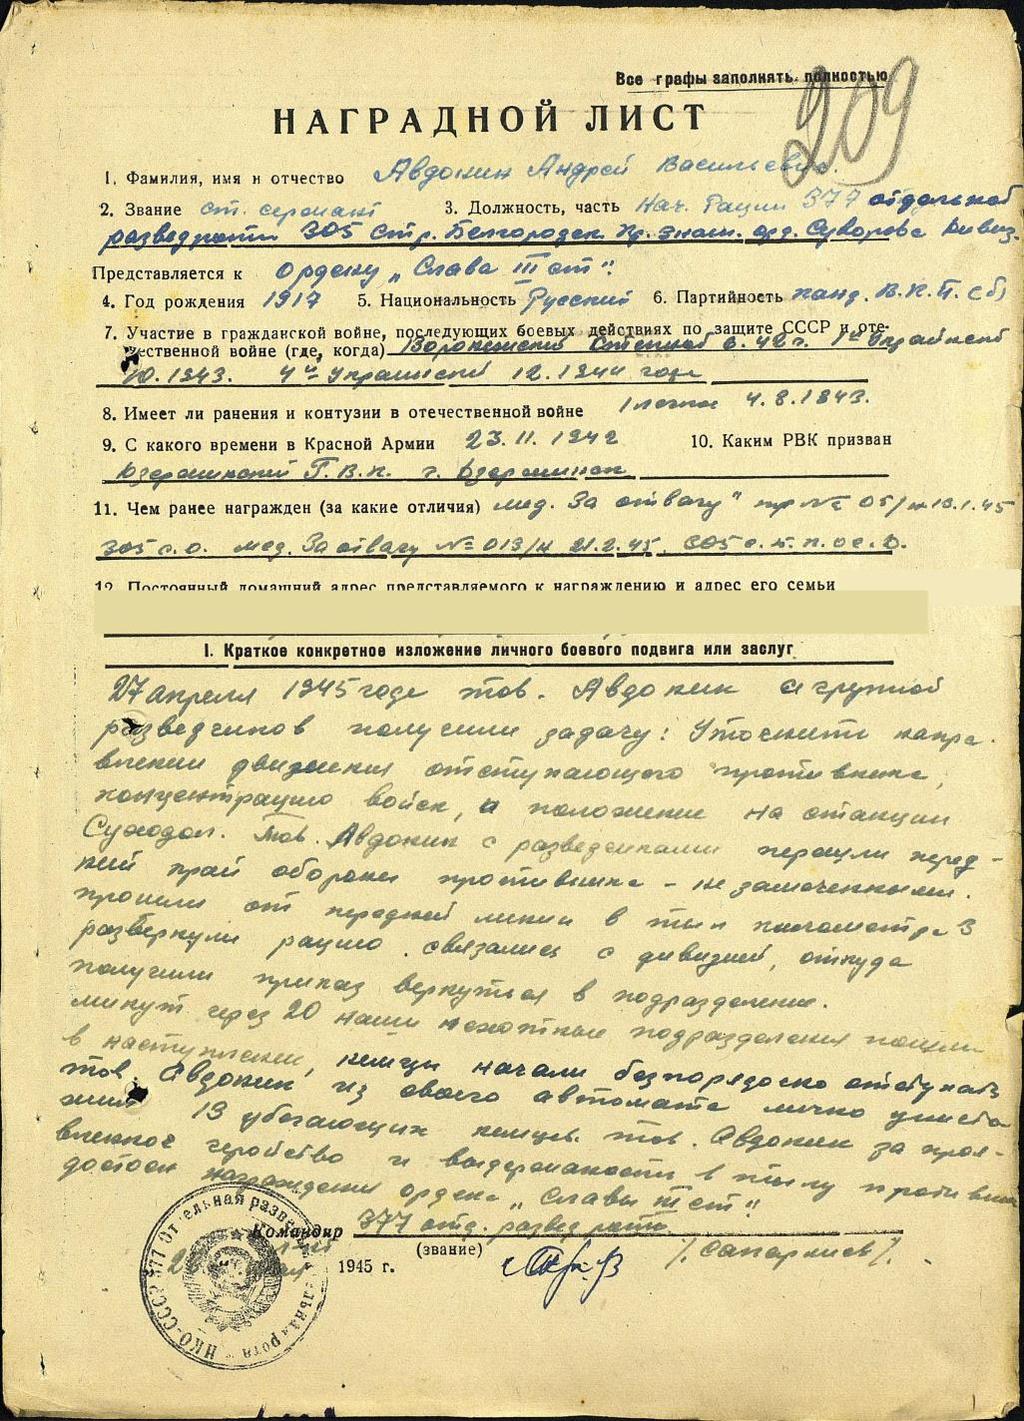 Все графы заполнять полностью
209
НАГРАДНОЙ ЛИСТ
1. Фамилия, имя и отчество Авдокин Андрей Васильевич.
2. Звание ст. сержант 3. Должность, часть Нач. Рации 377 отдельной
разведроты 305 Стр. Белгородск. Кр. знам. орд. Суворова Дивиз.
Представляется к Ордену „Слава III ст".
4. Год рождения 1917 5. Национальность Русский 6. Партийность канд. В.К.П.(б)
7. Участие в гражданской войне, последующих боевых действиях по защите СССР и оте-
чественной войне (где, когда) Воронежский Степной 6. 42 г. 1й Украинский
10.1943. 4й Украинский 12.1944 года
8. Имеет ли ранения и контузии в отечественной войне 1 легкое 4.8.1943.
9. С какого времени в Красной Армии 23.11.1942 10. Каким РВК призван
Дзержинский Г.В.К. г. Дзержинск
11. Чем ранее награжден (за какие отличия) мед. За отвагу" пр № 05/н 13.1.45
305 с.д. мед. За отвагу № 013/н 21.2.45, 305 с.
12. Постоянный домашний адрес представляемого к награждению и адрес его семьи
I. Краткое конкретное изложение личного боевого подвига или заслуг
27 апреля 1945 года тов. Авдокин с группой
разведчиков получили задачу: Уточнить напра-
влении движения отступающего противника,
концентрацию войск, и положение на станции
Суходол. Тов. Авдокин с разведчиками перешли перед-
ний край обороны противника - не замеченными.
прошли от передней линии в тыл километра 3
развернули рацию, связались с дивизией, откуда
получили приказ вернуться в подразделение.
минут через 20 наши пехотные подразделения пошли
в наступление, немцы начали беспорядоско отступать
тов. Авдокин из своего автомата лично уничто
жил 13 убегающих немцев. тов. Авдокин за проя-
вленное геройство и выдержаность в тылу противника
достоен награждения ордена „Славы III ст".
Командир 377 отд. развед роты
(звание)
/. Сапаркиев /.
1945 г.
НКО-СССР 377 Отдельная разведывательная рота